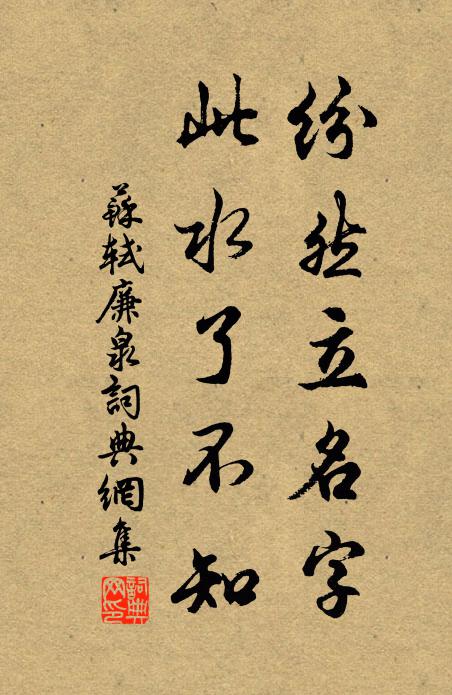 纷然立名字
此水了不知
蘇軾廉泉詞典網集
詞典网印